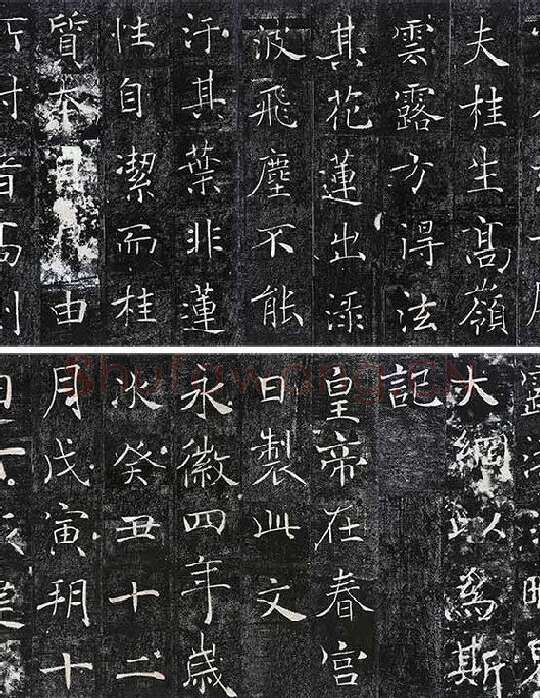 夫桂生髙嶺
雲露方得泫
其花蓮出渌
波飛塵不能
汙其葉非蓮
性自潔而桂
質本由
大綱以爲斯
記
皇帝在春宮
日製此文
永徽四年歲
次癸丑十二
月戊寅朔十